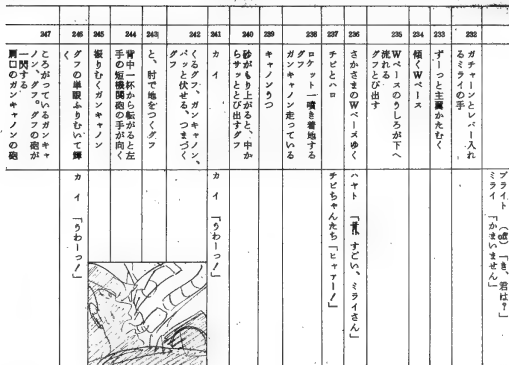 ブライト (OFF)「き、君は？」
ミライ 「かまいません」
232
ガチャーンとレバー入れ
るミライの手
233
ずーっと主翼かたむく
234
傾くWベース
235
Wベースのうしろが下へ
流れる
グフとび出す
236
さかさまのWベースゆく
ハヤト 「すごい、ミライさん」
237
チビとハロ
チビちゃんたち「ヒャァー！」
238
ロケット一噴き着地する
グフ
ガンキャノン走っている
239
キャノンうつ
240
砂がもり上がると、中か
らサッととび出すグフ
241
カイ
カイ 「うわーっ！」
242
くるグフ、ガンキャノン、
パッと伏せる、つまづく
グフ
243
と、肘で地をつくグフ
244
背中一杯から転がると左
手の短機関砲の手が向く
245
振りむくガンキャノン
246
グフの単眼ふりむいて輝
く
カイ 「うわーっ！」
247
ころがっているガンキャ
ノン、グフ。グフの砲が
一閃する
肩口のガンキャノンの砲